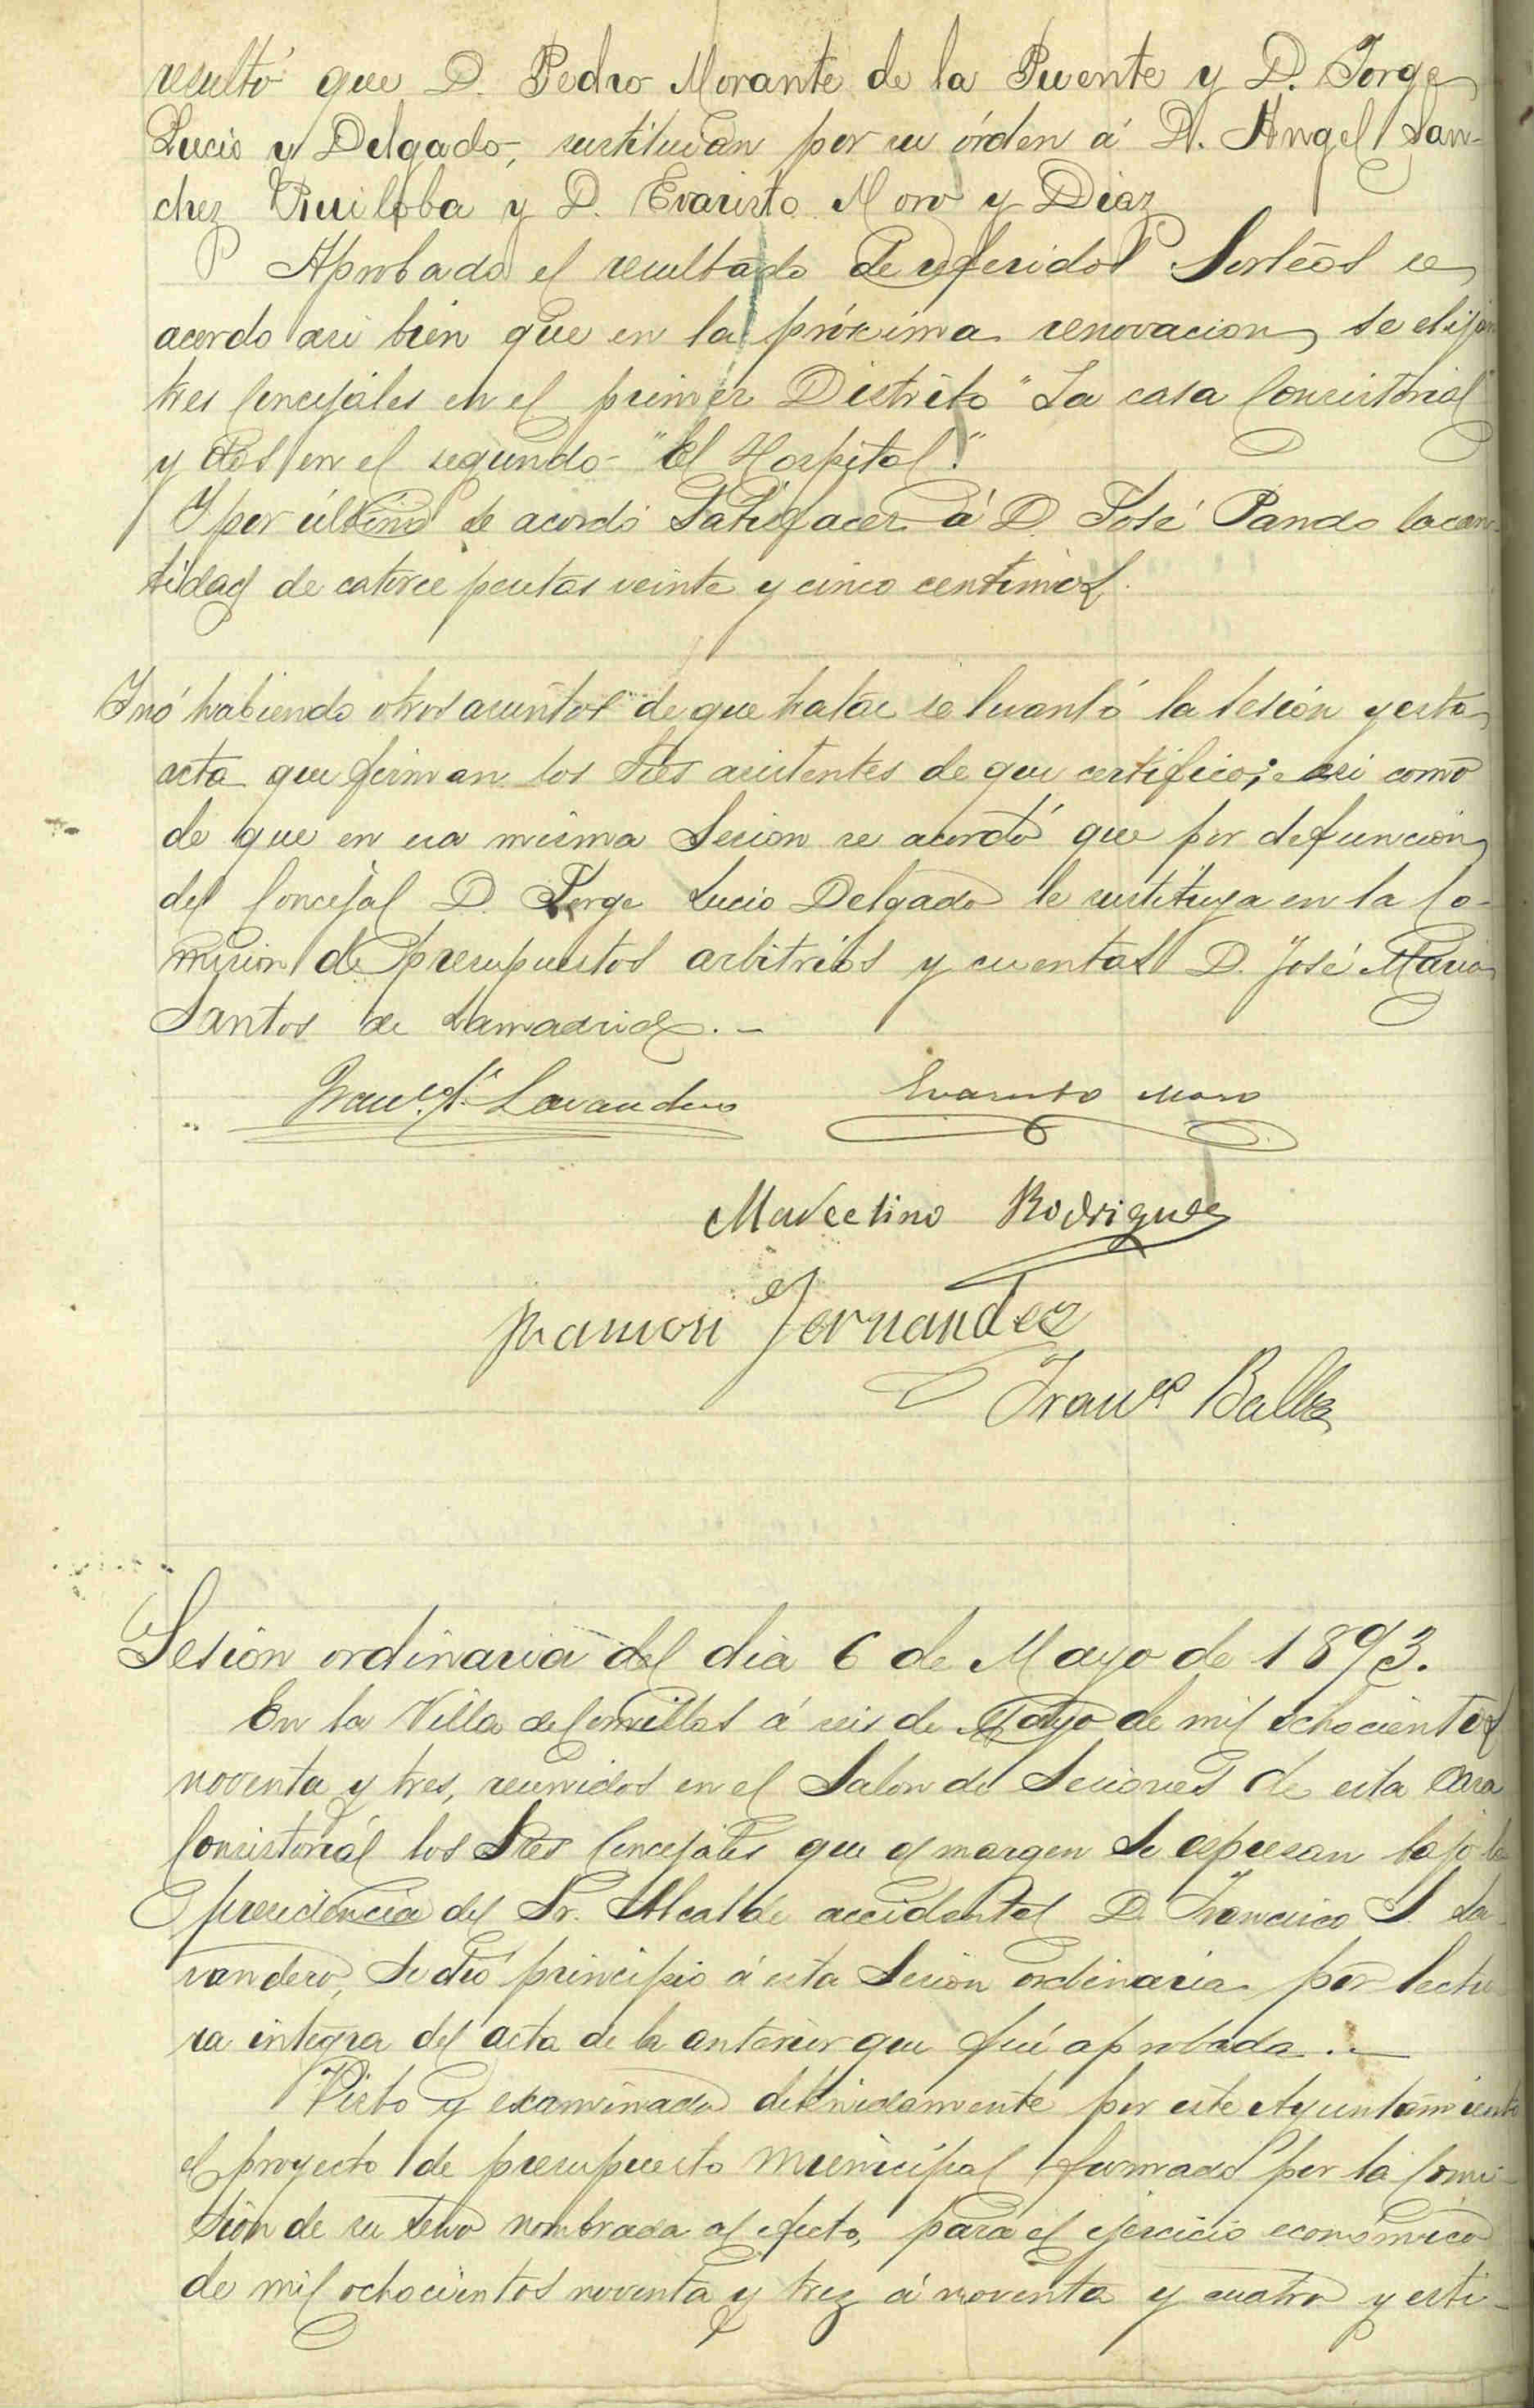 resultó que D. Pedro Morante de la Puente y D. Jorge
Lucio y Delgado, sustituian por su órden á D. Angel San-
chez Quiloba y D. Evaristo Moro y Diaz
Aprobado el resultado de referidos Sorteos se
acordo asi bien que en la próxima renovacion, se elijan
tres Concejales en el primer Distrito "La casa Consistorial"
y dos en el segundo "El Hospital."
Y por último se acordó Satisfacer á D. José Pando la can-
tidad de catorce pesetas veinte y cinco centimos.
Y nó habiendo otros asuntos de que tratar se levantó la sesión y esta
acta que firman los Sres asistentes de que certifico; asi como
de que en esa misma Sesion se acordó que por defuncion
del Concejal D. Jorge Lucio Delgado le sustituya en la Co-
mision de presupuestos arbitrios y cuentas D. José Maria
Santos de Lamadrid. -
Franco. S. Lavandero Evaristo Moro
Marcelino Rodriguez
Ramon Fernandez
Franco Balba
Sesión ordinaria del dia 6 de Mayo de 1893.
En la Villa de Comillas á seis de Mayo de mil ochocientos
noventa y tres, reunidos en el Salon de Sesiones de esta Casa
Consistorial los Sres Concejales que al margen se espresan bajo la
presidencia del Sr. Alcalde accidental D. Francisco S. La-
vandero, se dió principio á esta Sesion ordinaria por lectu
ra integra del acta de la anterior que fué aprobada. -
Visto y examinado detenidamente por este Ayuntamiento
el proyecto de presupuesto municipal formado por la Comi-
sion de su seno nombrada al efecto, para el ejercicio económico
de mil ochocientos noventa y trez á noventa y cuatro y esti-